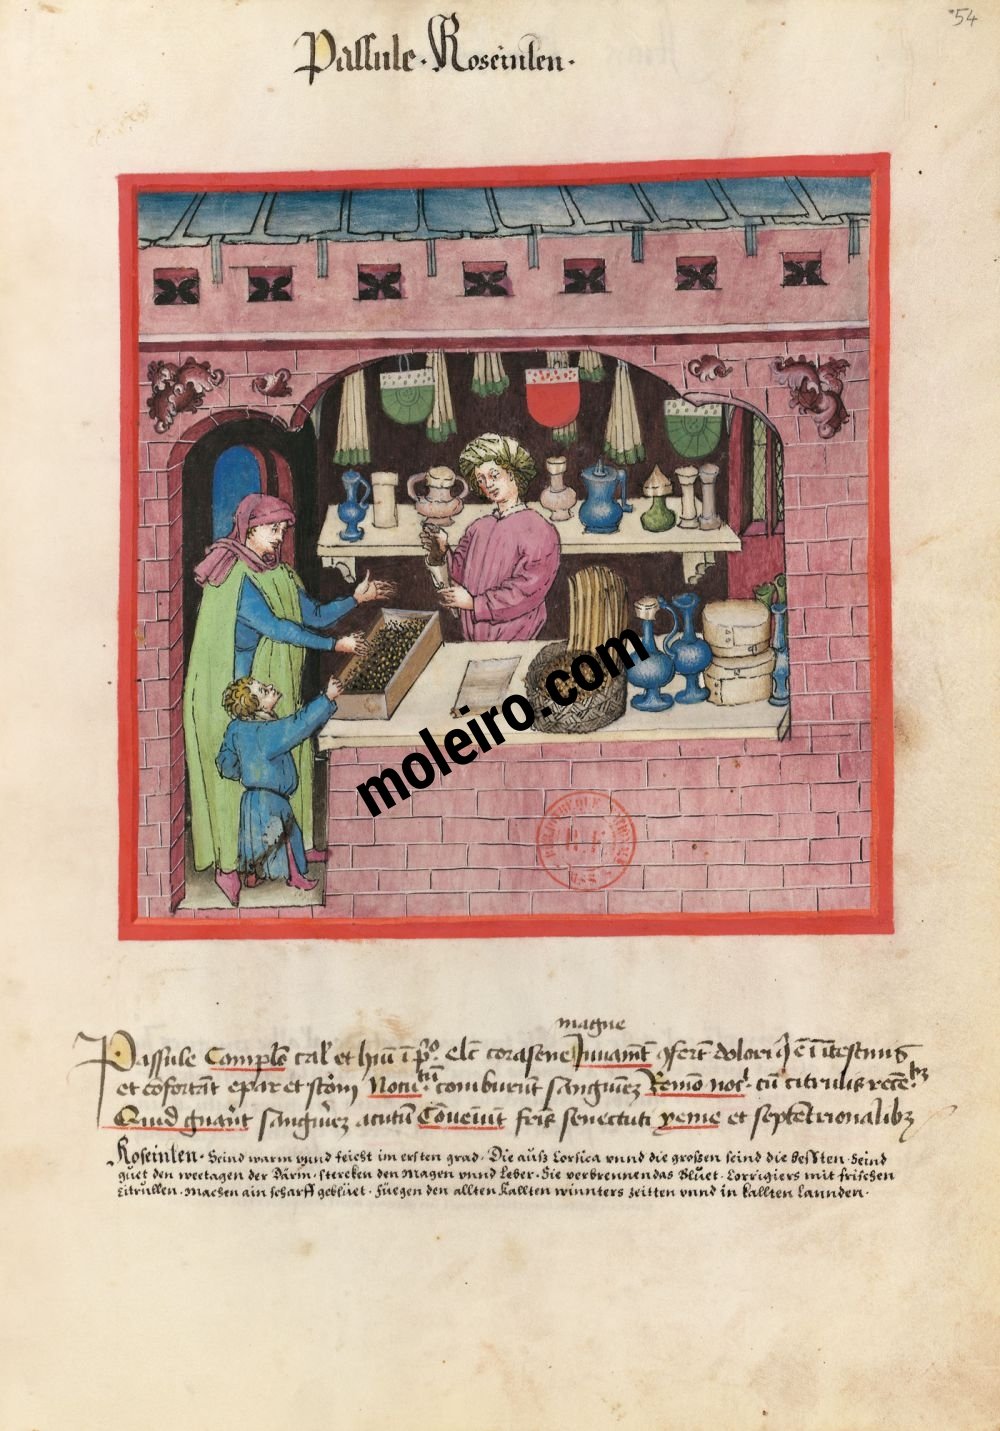 54
Passule · Roseinlen ·
moleiro.com
magne
Passule Comp̄lē cal̕ et hu̅ i̅ p̕o. elc̄ corasene Juuamt̄ ꝯfert̄ dolori q̄ ē i̅ i̅testinis
et cōfortāt epar et stōm Nocu̅tū comburūt sanguinez Remo nocͭ cū citrulis recēbz
Quid gnānt sanguīez acutū Cōueniūt friḡ senectuti yeme et septētrionalibz
Roseinlen · Seind warm vnnd feicht im ersten grad · Die aüss Corsica vnnd die grossen seind die besSten · Seind
guet den weetagen der Därm · sterckhen den Magen vnnd Leber · Sie verbrennen das Blüet · Corrigiers mit frischen
Citrullen · Machen ain scharff geblüet · Fuegen den allten kallten winnters zeitten vnnd in kallten Lannden ·